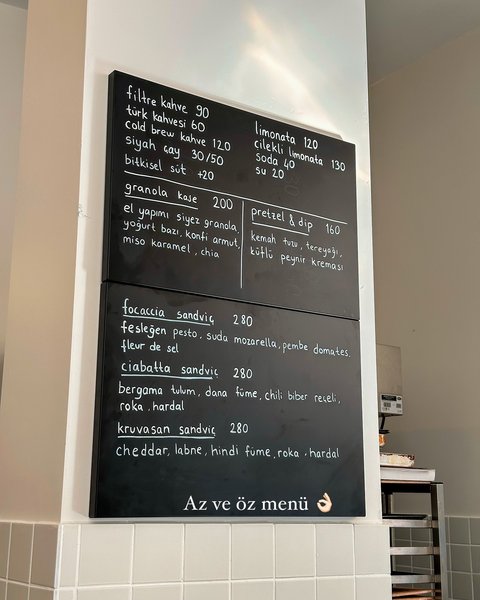 filtre kahve 90
türk kahvesi 60
cold brew kahve 120
siyah çay 30/50
bitkisel süt +20
limonata 120
çilekli limonata 130
soda 40
su 20
granola kase 200
el yapımı siyez granola,
yoğurt bazı, konfi armut,
miso karamel, chia
pretzel & dip 160
kemah tuzu, tereyağı,
küflü peynir kreması
focaccia sandviç 280
fesleğen pesto, suda mozarella, pembe domates,
fleur de sel
ciabatta sandviç 280
bergama tulum, dana füme, chili biber reçeli,
roka, hardal
kruvasan sandviç 280
cheddar, labne, hindi füme, roka, hardal
Az ve öz menü 👌🏻